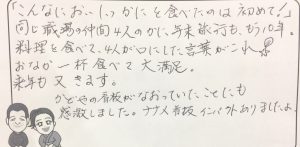 「こんなにおいしいかにを食べたのは初めて！」
同じ職場の仲間4人のかに、年末旅行も、もう10年。
料理を食べて、4人が口にした言葉がこれ!
おなか一杯食べて大満足。
来年も又きます。
かどやの看板がなおっていたことにも
感激しました。ナナメ看板インパクトありましたよ